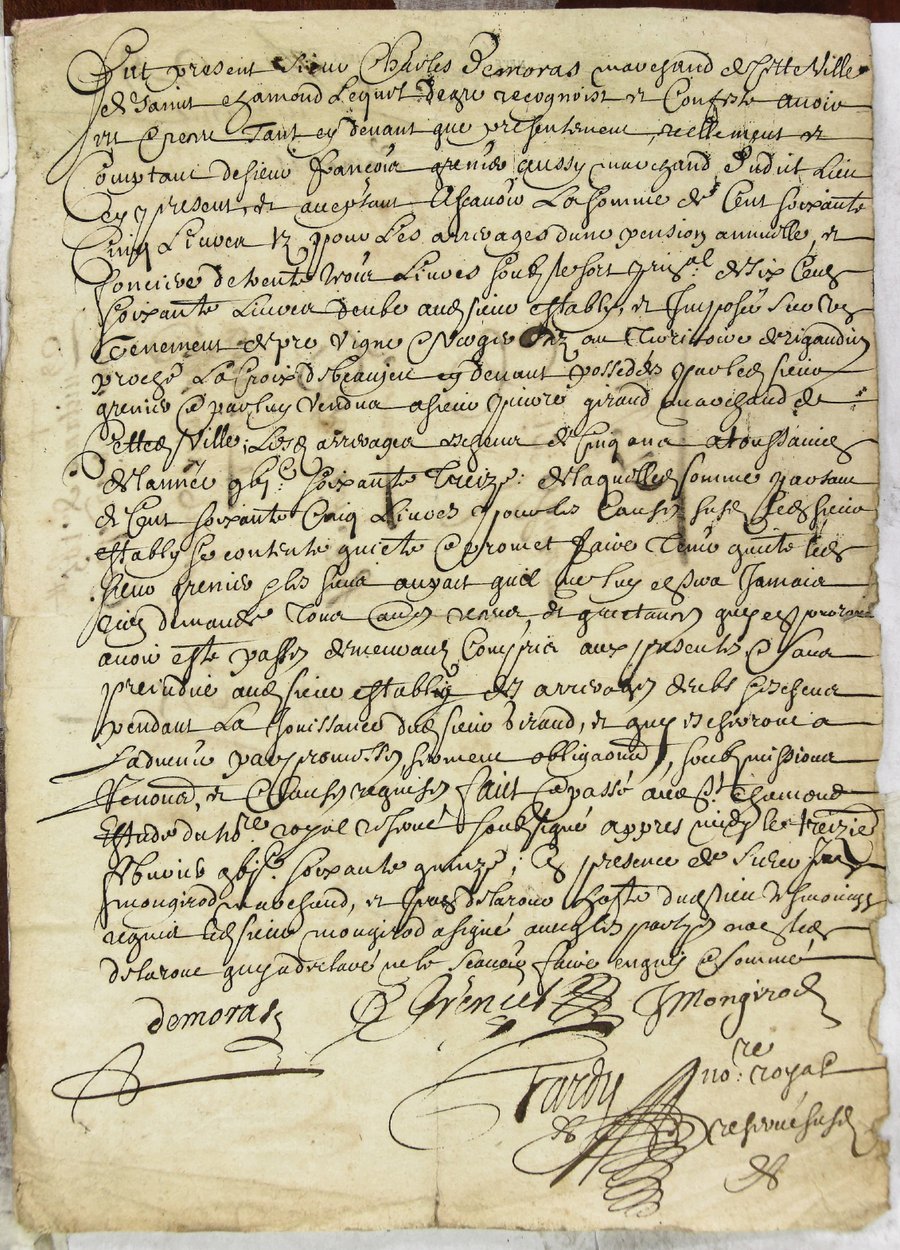 Fut present sieur Charles Demoras marchand de cette Ville
de Saint Chamond Lequel de gre recognoist et Confesse avoir
eu et receu Tant cy devant que presentement, reellement et
Comptant de sieur françois grenier aussy marchand dudit Lieu
cy present, et acceptant Ascavoir La somme de Cent soixante
Cinq Livres Tz pour Les arrerages dune pension annuelle, et
fonciere de trente trois Livres soubz le sort prinal de six Cens
soixante Livres deube aud sieur estably, et Imposée sur ung
Tenement de pre vigne et verger sis au Territoire de rigaudin
proche La Croix de beaujeu cy devant possedés par led sieur
grenier et par luy Vendus a sieur pierre girand marchand de
Cetted Ville, Lesd arrerages escheus de Cinq ans a toussaincts
de Lannée gbic soixante Treize: de laquelled somme partant
de Cent soixante Cinq Livres pour les Causes susd Led sieur
estably se contente quicte et promet faire Tenir quicte led
sieur grenier et les siens au pait quil ne luy en sera Jamais
rien demandé Tous autres receus, et quictances quy en pourroient
avoir esté passés demeurans Compris aux presentes, et sans
preiudice aud sieur estably des arrerages deubs et escheus
pendant La Jouissance dud sieur Girand, et quy escherront a
Ladvenir par promesses serment obligaons, soubzmissions
Renons, et Clauses requises faict et passé aud St Chamond
Estude du nore royal reservé soubsigné appres midy le treizie
febvrier gbic soixante quinze; En presence de sieur
mongirod marchand, et de laroue hoste dud lieu tesmoings
requis led sieur mongirod a signé avec les partyes non led
delaroue quy a declaré ne le scavoir faire enquis et sommé
demoras
Grenier
J Mongirod
Tardy nore royal
reservé susd